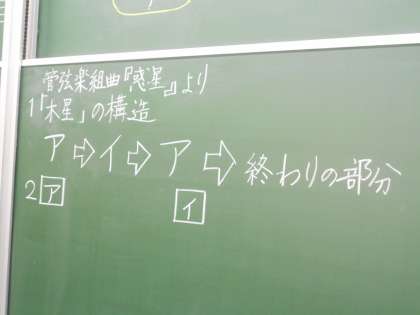 管弦楽組曲『惑星』より
1「木星」の構造
ア⇨イ⇨ア⇨終わりの部分
2 ア イ